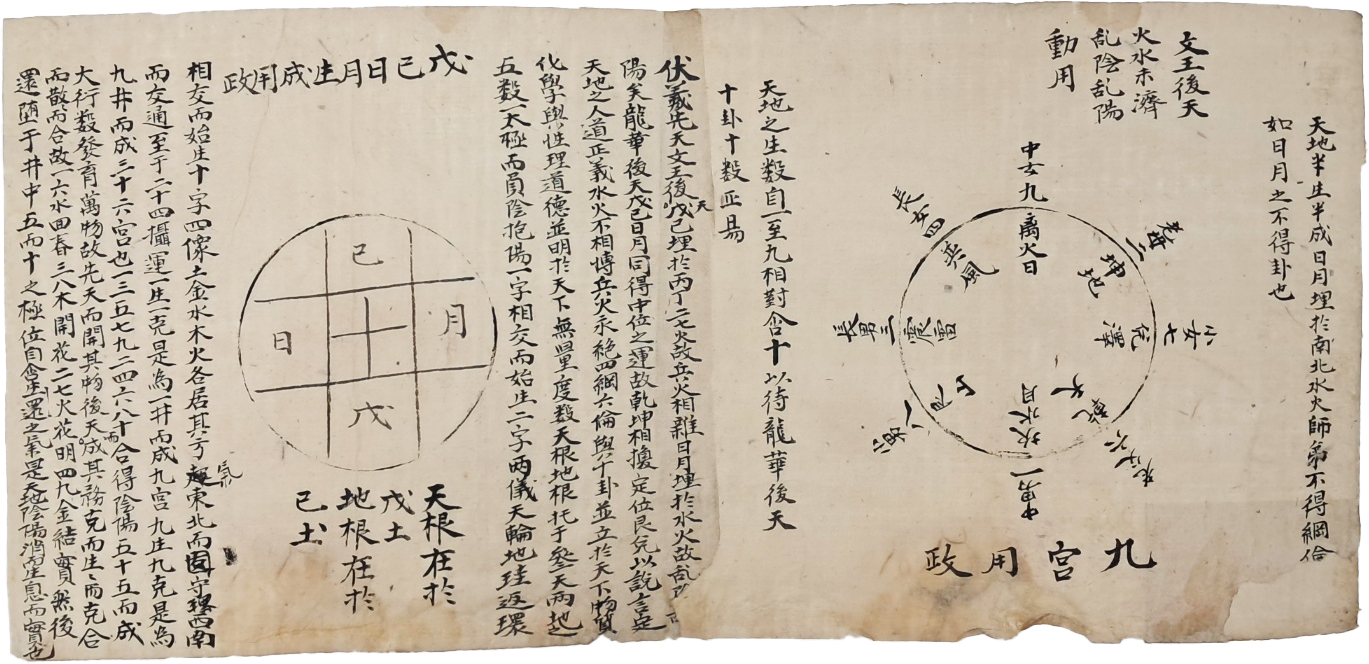 天地半生半成日月埋於南北水火師弟不得綱倫
如日月之不得卦也
文王後天
火水未濟
乱陰乱陽
動用
中女九
離火日
老母二
坤地
少女七
兌澤
乾天
老父六
中男一
坎水月
艮山
少男八
長男三
震雷
長女四
巽風
九宮用政
天地之生數自一至九相對含十以待龍華後天
十卦十數正易
伏羲先天文王後天戊己埋於丙丁二七火故兵火相雜日月埋於水火故乱
陽矣龍華後天戊己日月同得中位之運故乾坤相擾定位艮兌以說言定
天地之人道正義水火不相博兵火永絶四綱六倫與十卦並立於天下物質
化學與性理道德並明於天下無量度數天根地根托于參天兩地之
五數一太極而負陰抱陽一字相交而始生二字兩儀天輪地珪返環
戊己日月生成用政
己
月
十
日
戊
天根在於
戊土
地根在於
己土
相交而始生十字四像土金水木火各居其方氣起東北而固守理西南
而交通至于二十四攝運一生一克是為一井而成九宮九生九克是為
九井而成三十六宮也一三五七九二四六八十合得陰陽五十五而成
大行數發育萬物故先天而開其物後天而成其務克而生生而克合
而散而合故一六水回春三八木開花二七火花明四九金結實然後
還堕于井中五而十之極位自含生還之氣是天地陰陽消而生息而實也